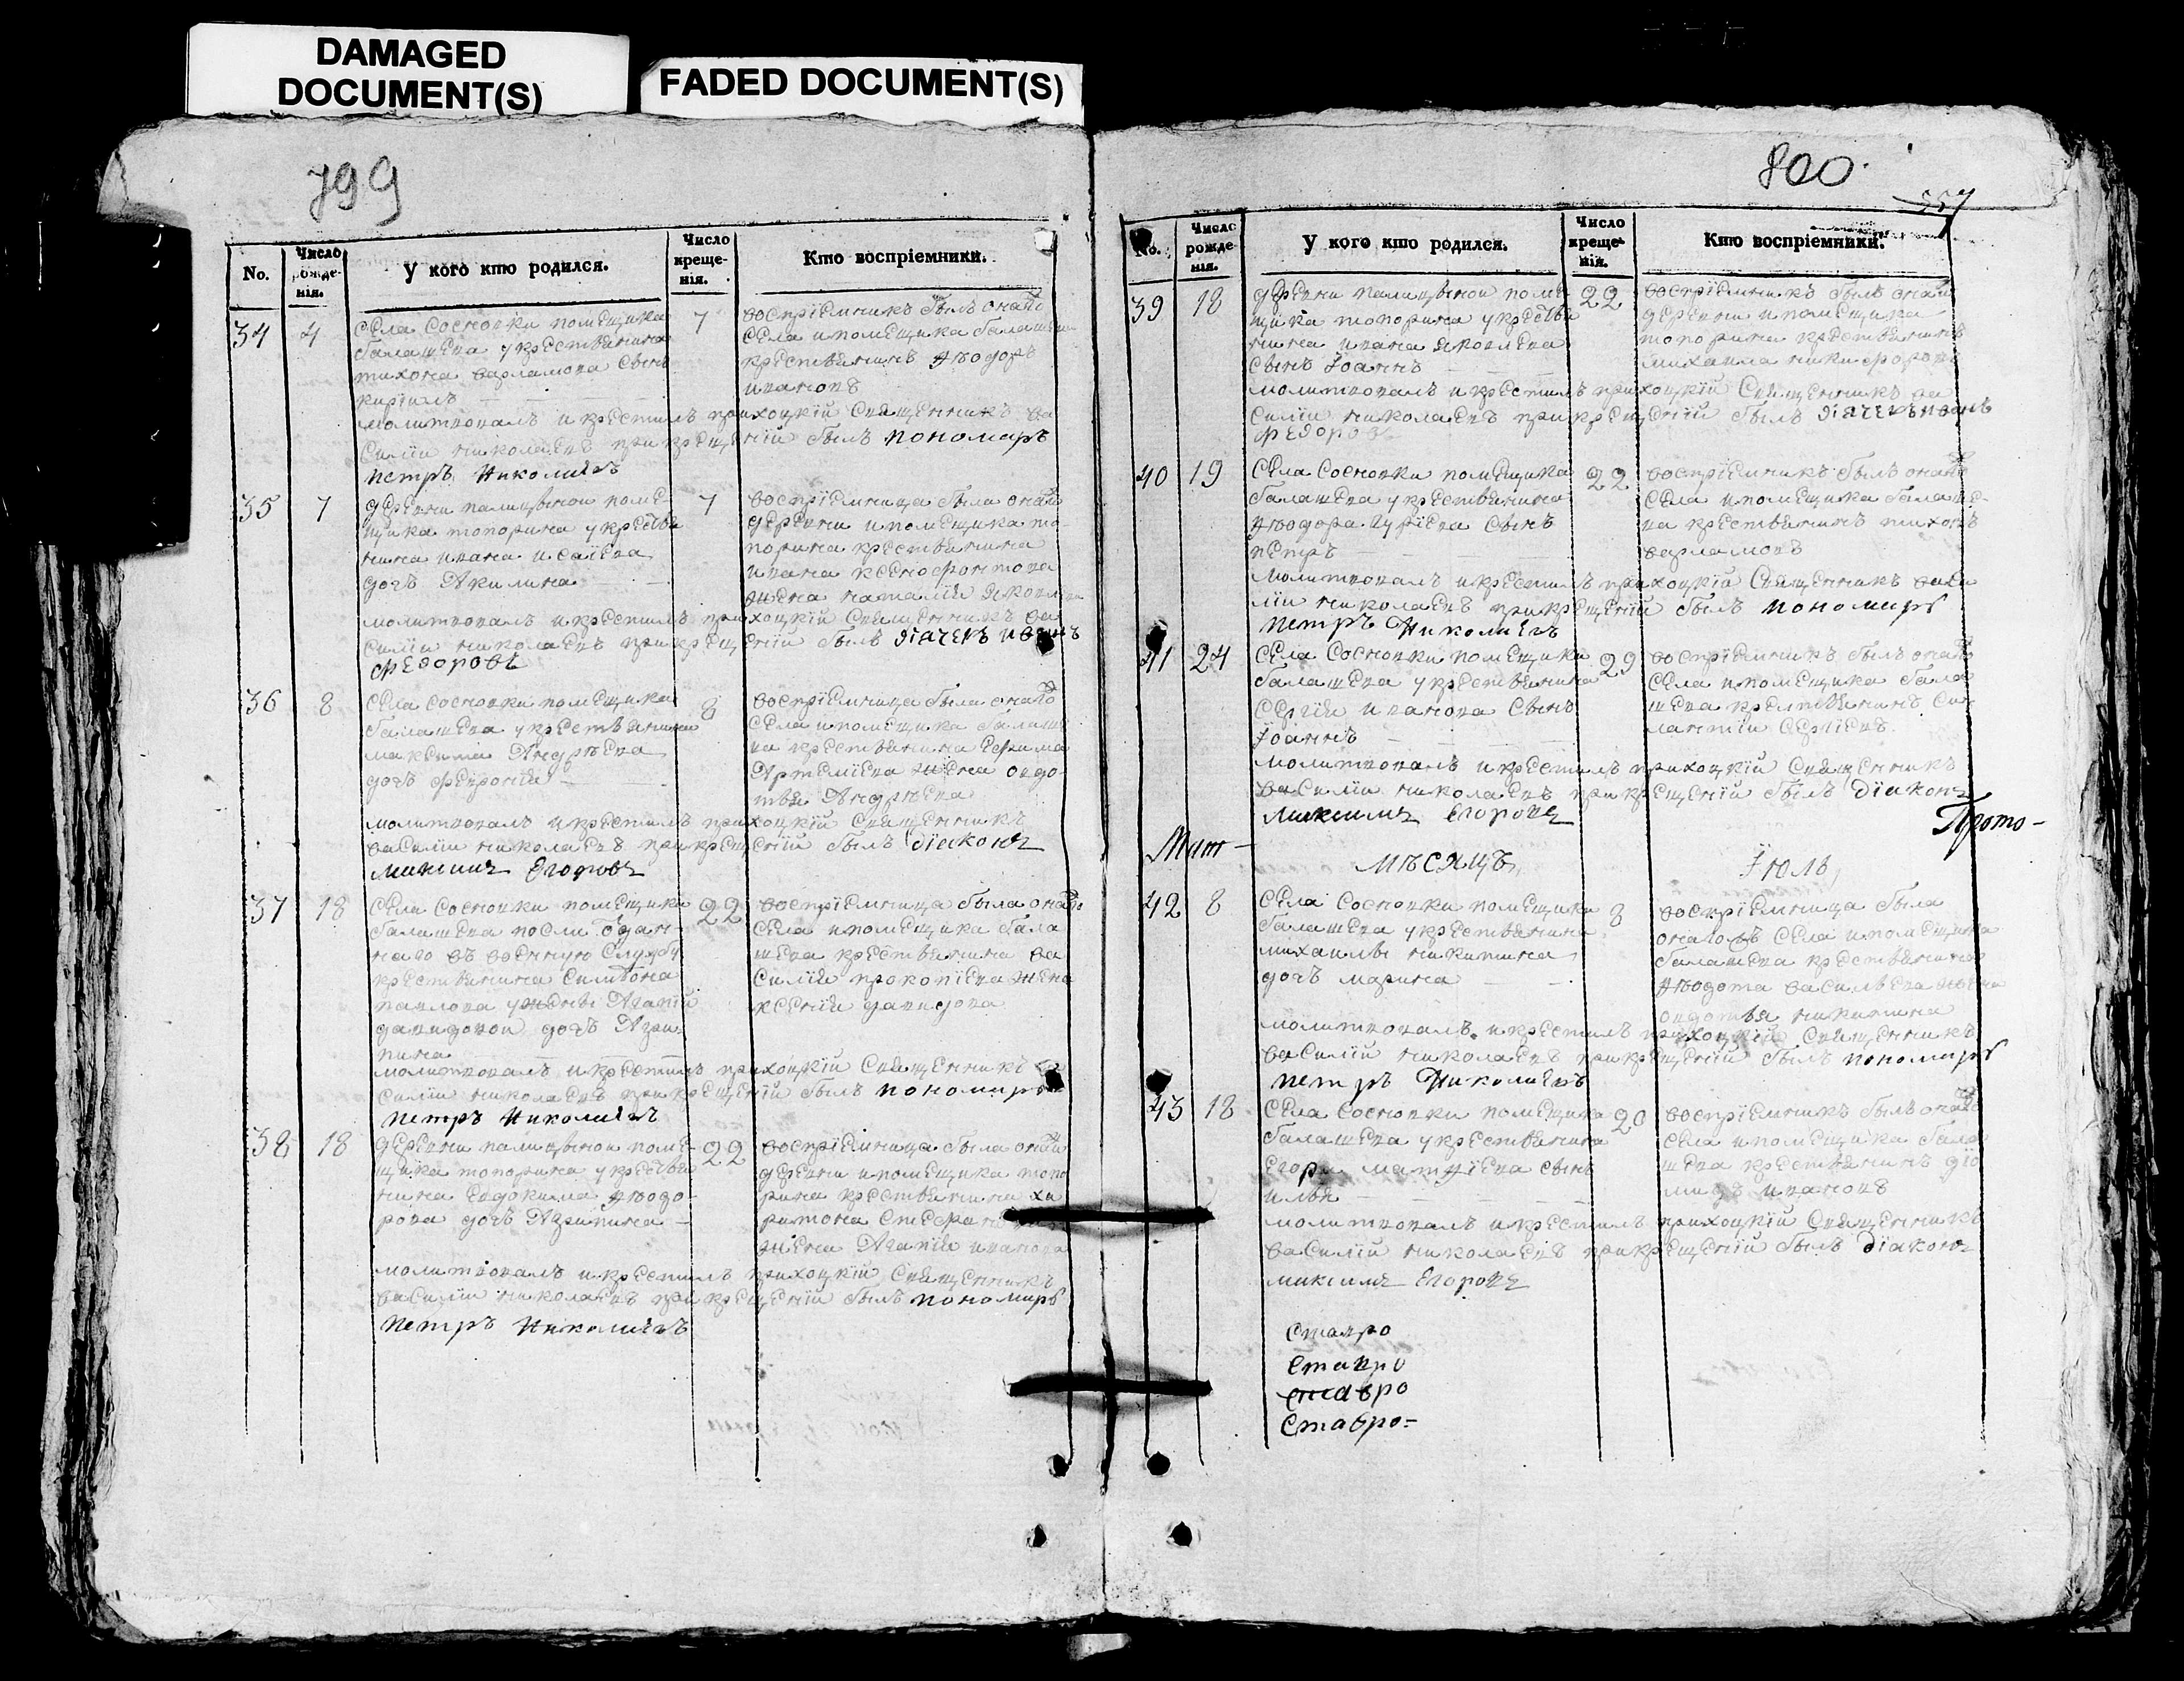 DAMAGED
DOCUMENT(S)
FADED DOCUMENT(S)
799
No.
Число рожденія.
У кого кто родился.
Число крещенія.
Кто воспріемники.
34 4 7
села сосновки помещика
балашева у крестьянина
тихона варламова сынъ
кирiилъ
воспрiемникъ былъ онаго
села и помещика балашева
крестьянинъ ѳеодоръ
ивановъ
молитвовалъ и крестилъ прихоцкiй священникъ ва
силiи николаевъ при крещенiи былъ пономаръ
петръ николаевъ
35 7 7
деревни палицыной поме
щика топорина у крестья
нина ивана исаiева
дочь Акилина
воспрiемница была оной
деревни и помещика то-
порина крестьянина
ивана ксенофонтова
жена наталiя яковлева
молитвовалъ и крестилъ прихоцкiй священникъ ва
силiи николаевъ при крещенiи былъ дiачекъ иванъ
федоровъ
36 8 8
села сосновки помещика
балашева у крестьянина
максима Андрѣева
дочь феѵронiя
воспрiемница была онаго
села и помещика балаше
ва крестьянина ефима
Артемiева жена овдо
тья Андрѣева
молитвовалъ и крестилъ прихоцкiй священникъ
василiи николаевъ при крещенiи былъ дiаконъ
максимъ Егоровъ
37 18 22
села сосновки помещика
балашева посли отдан-
наго въ военную службу
крестьянина симеона
павлова у жены Агапiи
давидовои дочь Агри
пина
воспрiемница была онаго
села и помещика бала
шева крестьянина ва
силiя прокопiева жена
ксенiя давидова
молитвовалъ и крестилъ прихоцкiй священникъ ва
силiи николаевъ при крещенiи былъ пономаръ
петръ николаевъ
38 18 22
деревни палицыной поме-
щика топорина у крестья
нина евдокима ѳеодо-
рова дочь Агрипина
воспрiемница была оной
деревни и помещика топо
рина крестьянина ха
ритона стефанова
жена Агапiя иванова
молитвовалъ и крестилъ прихоцкiй священникъ
василiи николаевъ при крещенiи былъ пономаръ
петръ николаевъ
800
No.
Число рожденія.
У кого кто родился.
Число крещенія.
Кто воспріемники.
39 18 22
деревни палицыной поме
щика топорина у крестья
нина ивана яковлева
сынъ Iоаннъ
воспрiемникъ былъ оной
деревни и помещика
топорина крестьянинъ
михаила никифоровъ
молитвовалъ и крестилъ прихоцкiй священникъ ва
силiи николаевъ при крещенiи былъ дiачекъ иванъ
федоровъ
40 19 22
села сосновки помещика
балашева у крестьянина
ѳеодора гурiева сынъ
петръ
воспрiемникъ былъ онаго
села и помещика балаше-
ва крестьянинъ тихонъ
варламовъ
молитвовалъ и крестилъ прихоцкiй священникъ васи
лiи николаевъ при крещенiи былъ пономаръ
петръ николаевъ
41 24 29
села сосновки помещика
балашева у крестьянина
сергiя иванова сынъ
Iоаннъ
воспрiемникъ былъ онаго
села и помещика бала
шева крестьянинъ
сергiевъ
молитвовалъ и крестилъ прихоцкiй священникъ
василiи николаевъ при крещенiи былъ дiаконъ
максимъ Егоровъ
Прото-
мѣсяцъ Iюль
42 8 8
села сосновки помещика
балашева у крестьянина
михаилы никитина
дочь марина
воспрiемница была
онаго села и помещика
балашева крестьянина
ѳеодота васильева жена
овдотья никитина
молитвовалъ и крестилъ прихоцкiй священникъ
василiй николаевъ при крещенiи былъ пономаръ
петръ николаевъ
43 18 20
села сосновки помещика
балашева у крестьянина
егора матѳiева сынъ
илья
воспрiемникъ былъ онаго
села и помещика бала
шева крестьянинъ дiо
мидъ ивановъ
молитвовалъ и крестилъ прихоцкiй священникъ
василiй николаевъ при крещенiи былъ дiаконъ
максимъ Егоровъ
ставро
ставро
ставро
ставро-